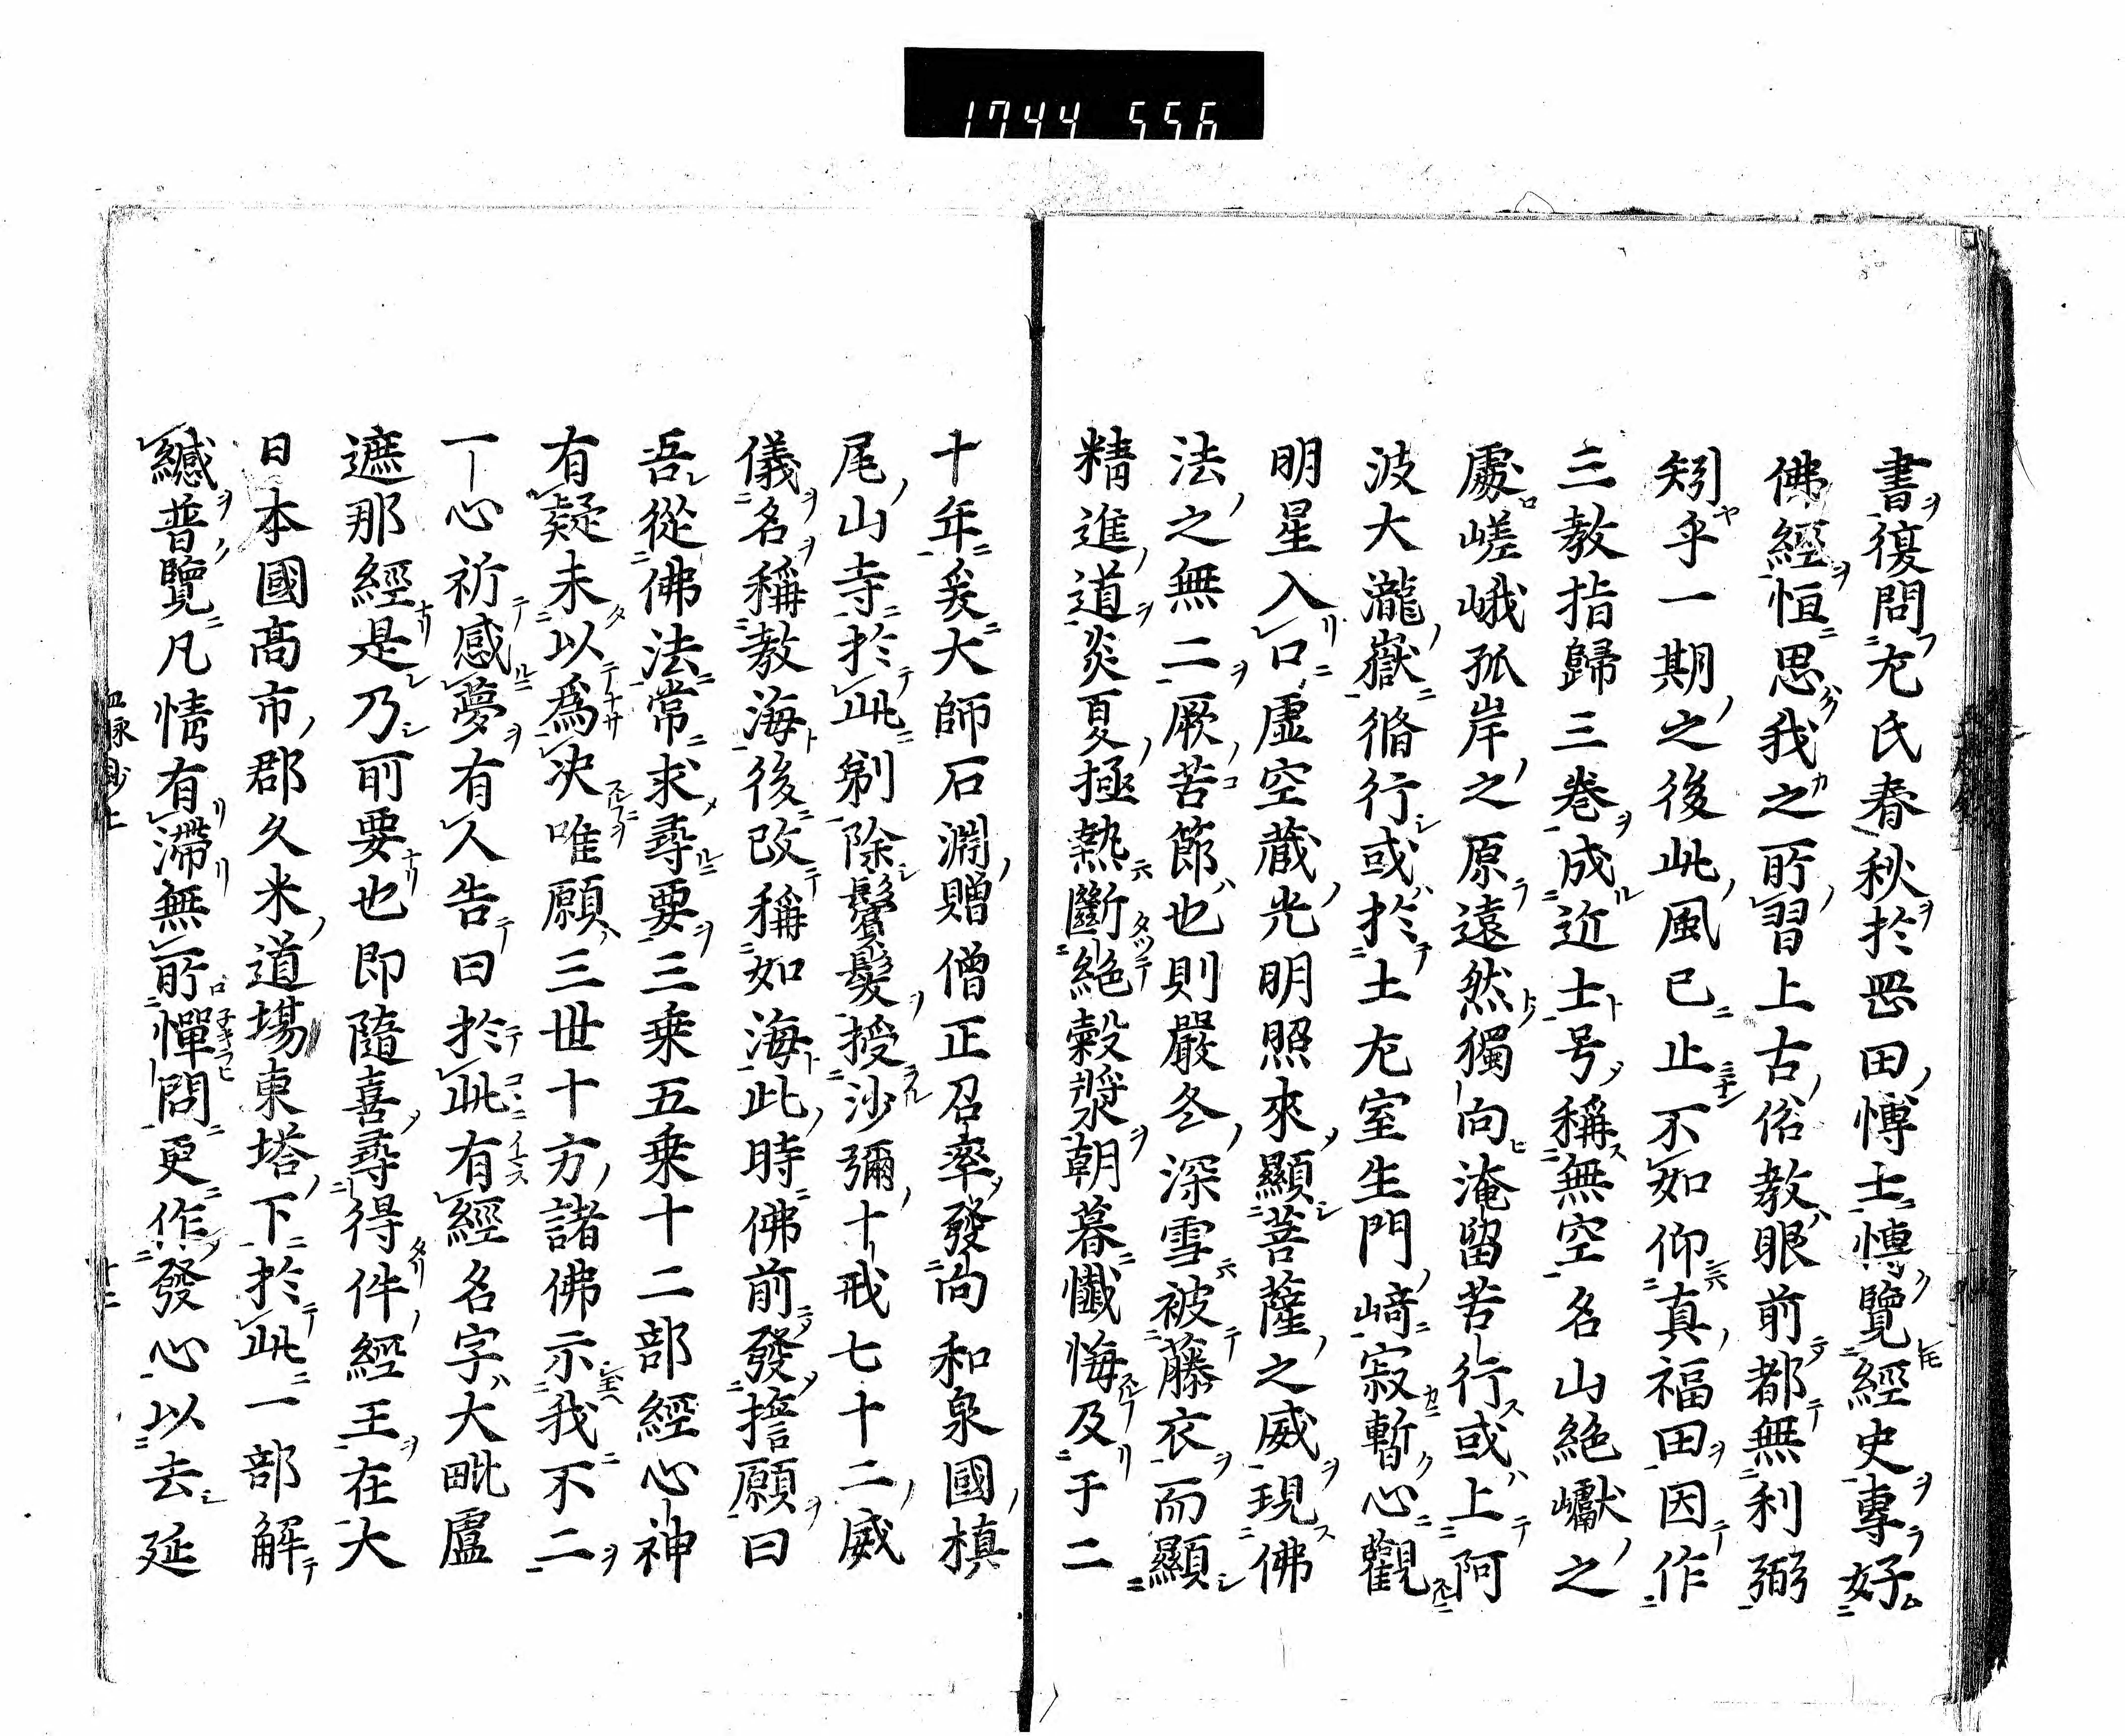 1744 556
書復問尤氏春秋於罡田博士博覽經史專好
佛經恒思我之所習上古俗教眼前都無利弼
矧乎一期之後此風已止不如仰真福田因作
三教指歸三卷成近士号稱無空名山絶巘之
處嵯峨孤岸之原遠然獨向淹留苦行或上阿
波大瀧嶽脩行或於土尤室生門﨑寂暫心觀
明星入口虚空蔵光明照來顯菩薩之威現佛
法之無二厥苦節也則嚴冬深雪被藤衣而顯
精進道炎夏極熱斷絶穀漿朝暮懺悔及于二
十年爰大師石淵贈僧正召率發向和泉國槙
尾山寺於此剃除鬢髮授沙彌十戒七十二威
儀名稱教海後改稱如海此時佛前發誓願曰
吾從佛法常求尋要三乗五乗十二部經心神
有疑未以爲决唯願三世十方諸佛示我不二
一心祈感夢有人告曰於此有經名字大毗盧
遮那經是乃所要也即隨喜尋得件經王在大
日本國髙市郡久米道塲東塔下於此一部解
緘普覽凡情有滯無所憚問更作發心以去延